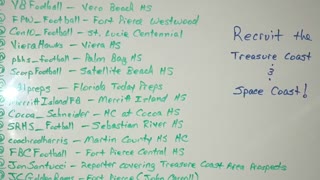 VBFootball — Vero Beach HS
FPW_Football — Fort Pierce Westwood
Cen10_Football — St. Lucie Centennial
VieraHawks — Viera HS
pbhs_football — Palm Bay HS
Scorp_Football — Satellite Beach HS
preps — Florida Today Preps
MerrittIslandFB — Merritt Island HS
Cocoa_Schneider — HC at Cocoa HS
SRHS_Football — Sebastian River HS
coachrodharris — Martin County HS HC
FBCFootball — Fort Pierce Central HS
JonSantucci — Reporter covering Treasure Coast Area Prospects
JCGoldenRams — Fort Pierce (John Carroll)
Recruit the
Treasure Coast
&
Space Coast!